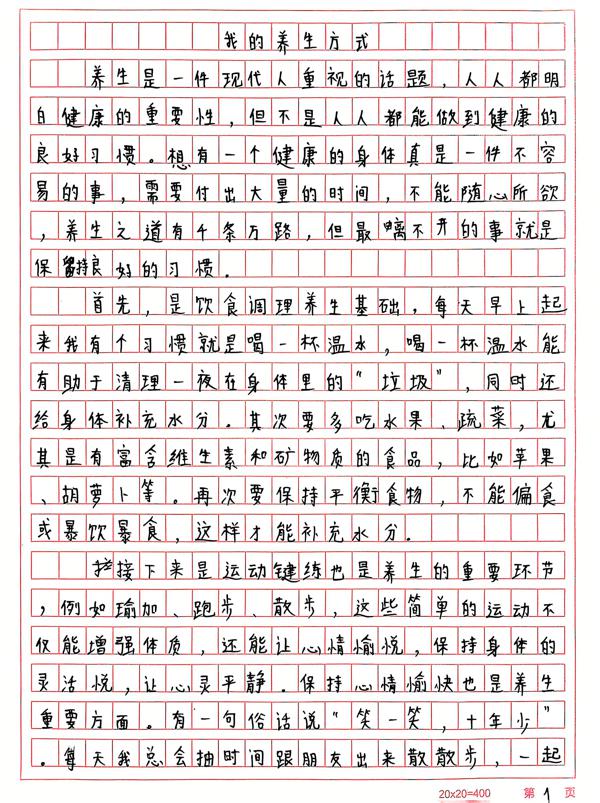 我的养生方式
养生是一件现代人重视的话题，人人都明
白健康的重要性，但不是人人都能做到健康的
良好习惯。想有一个健康的身体真是一件不容
易的事，需要付出大量的时间，不能随心所欲
，养生之道有千条万路，但最离不开的事就是
保留持良好的习惯。
首先，是饮食调理养生基础，每天早上起
来我有个习惯就是喝一杯温水，喝一杯温水能
有助于清理一夜在身体里的“垃圾”，同时还
给身体补充水分。其次要多吃水果、疏菜，尤
其是有富含维生素和矿物质的食品，比如苹果
、胡萝卜等。再次要保持平衡食物，不能偏食
或暴饮暴食，这样才能补充水分。
接下来是运动键练也是养生的重要环节
，例如瑜加、跑步、散步，这些简单的运动不
仅能增强体质，还能让心情愉悦，保持身体的
灵活悦，让心灵平静．保持心情愉快也是养生
重要方面。有一句俗话说“笑一笑，十年少”
。每天我总会抽时间跟朋友出来散散步，一起
20x20=400 第 1 页